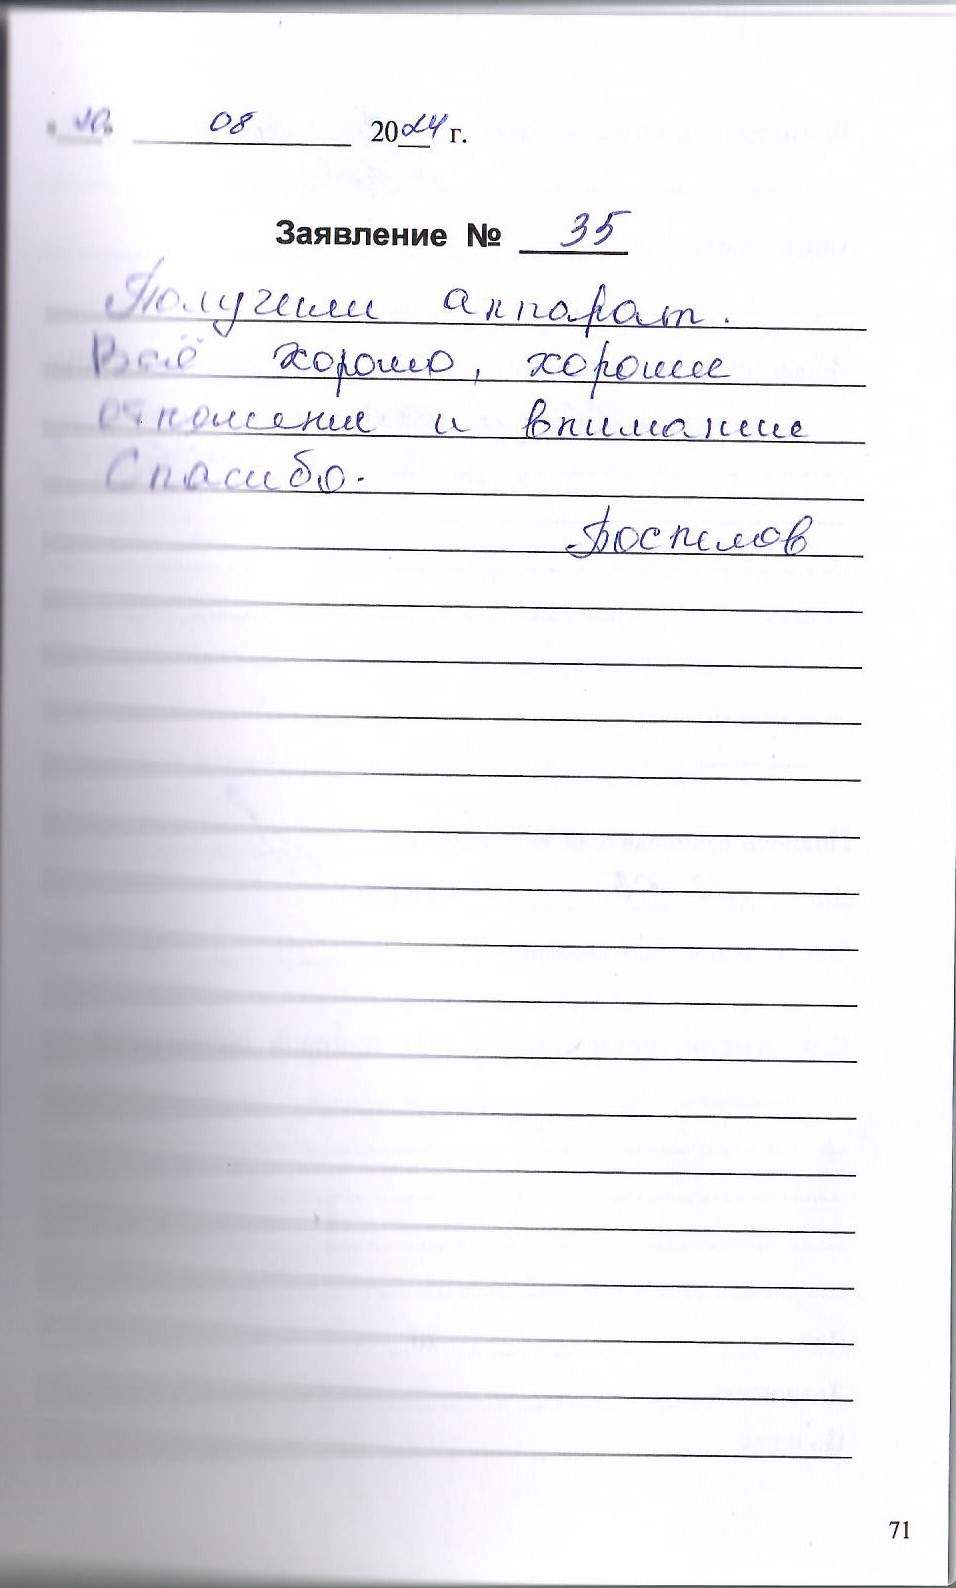 08 2024 г.
Заявление № 35
Получили аппарат.
Всё хорошо, хорошие
отношение и внимание
Спасибо.
71